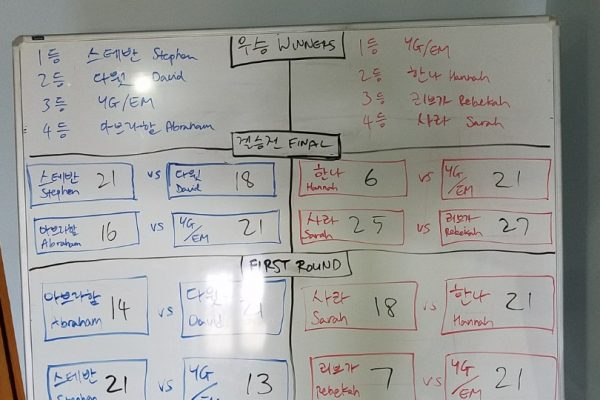 우승 WINNERS
1등 스테반 Stephen
2등 다윗 David
3등 YG/EM
4등 아브라함 Abraham
1등 YG/EM
2등 한나 Hannah
3등 리브가 Rebekah
4등 사라 Sarah
결승전 FINAL
스테반 Stephen 21 vs 다윗 David 18
한나 Hannah 6 vs YG/EM 21
아브라함 Abraham 16 vs YG/EM 21
사라 Sarah 25 vs 리브가 Rebekah 27
FIRST ROUND
아브라함 Abraham 14 vs 다윗 David 21
사라 Sarah 18 vs 한나 Hannah 21
스테반 Stephen 21 vs YG/EM 13
리브가 Rebekah 7 vs YG/EM 21